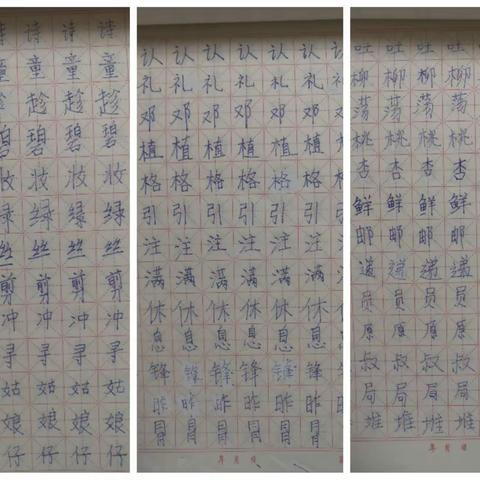 诗 诗 诗 诗
童 童 童 童
趁 趁 趁 趁
碧 碧 碧 碧
妆 妆 妆 妆
绿 绿 绿 绿
丝 丝 丝 丝
剪 剪 剪 剪
冲 冲 冲 冲
寻 寻 寻 寻
姑 姑 姑 姑
娘 娘 娘 娘
仔 仔 仔 仔
认 认 认 认 认 认
礼 礼 礼 礼 礼 礼
邓 邓 邓 邓 邓 邓
植 植 植 植 植 植
格 格 格 格 格 格
引 引 引 引 引 引
注 注 注 注 注 注
满 满 满 满 满 满
休 休 休 休 休 休
息 息 息 息 息 息
锋 锋 锋 锋 锋 锋
昨 昨 昨 昨 昨 昨
冒 冒 冒 冒 冒 冒
年 月 日
吐 吐 吐 吐
柳 柳 柳 柳
荡 荡 荡 荡
桃 桃 桃 桃
杏 杏 杏 杏
鲜 鲜 鲜 鲜
邮 邮 邮 邮
递 递 递 递
员 员 员 员
原 原 原 原
叔 叔 叔 叔
局 局 局 局
堆 堆 堆 堆
年 月 日